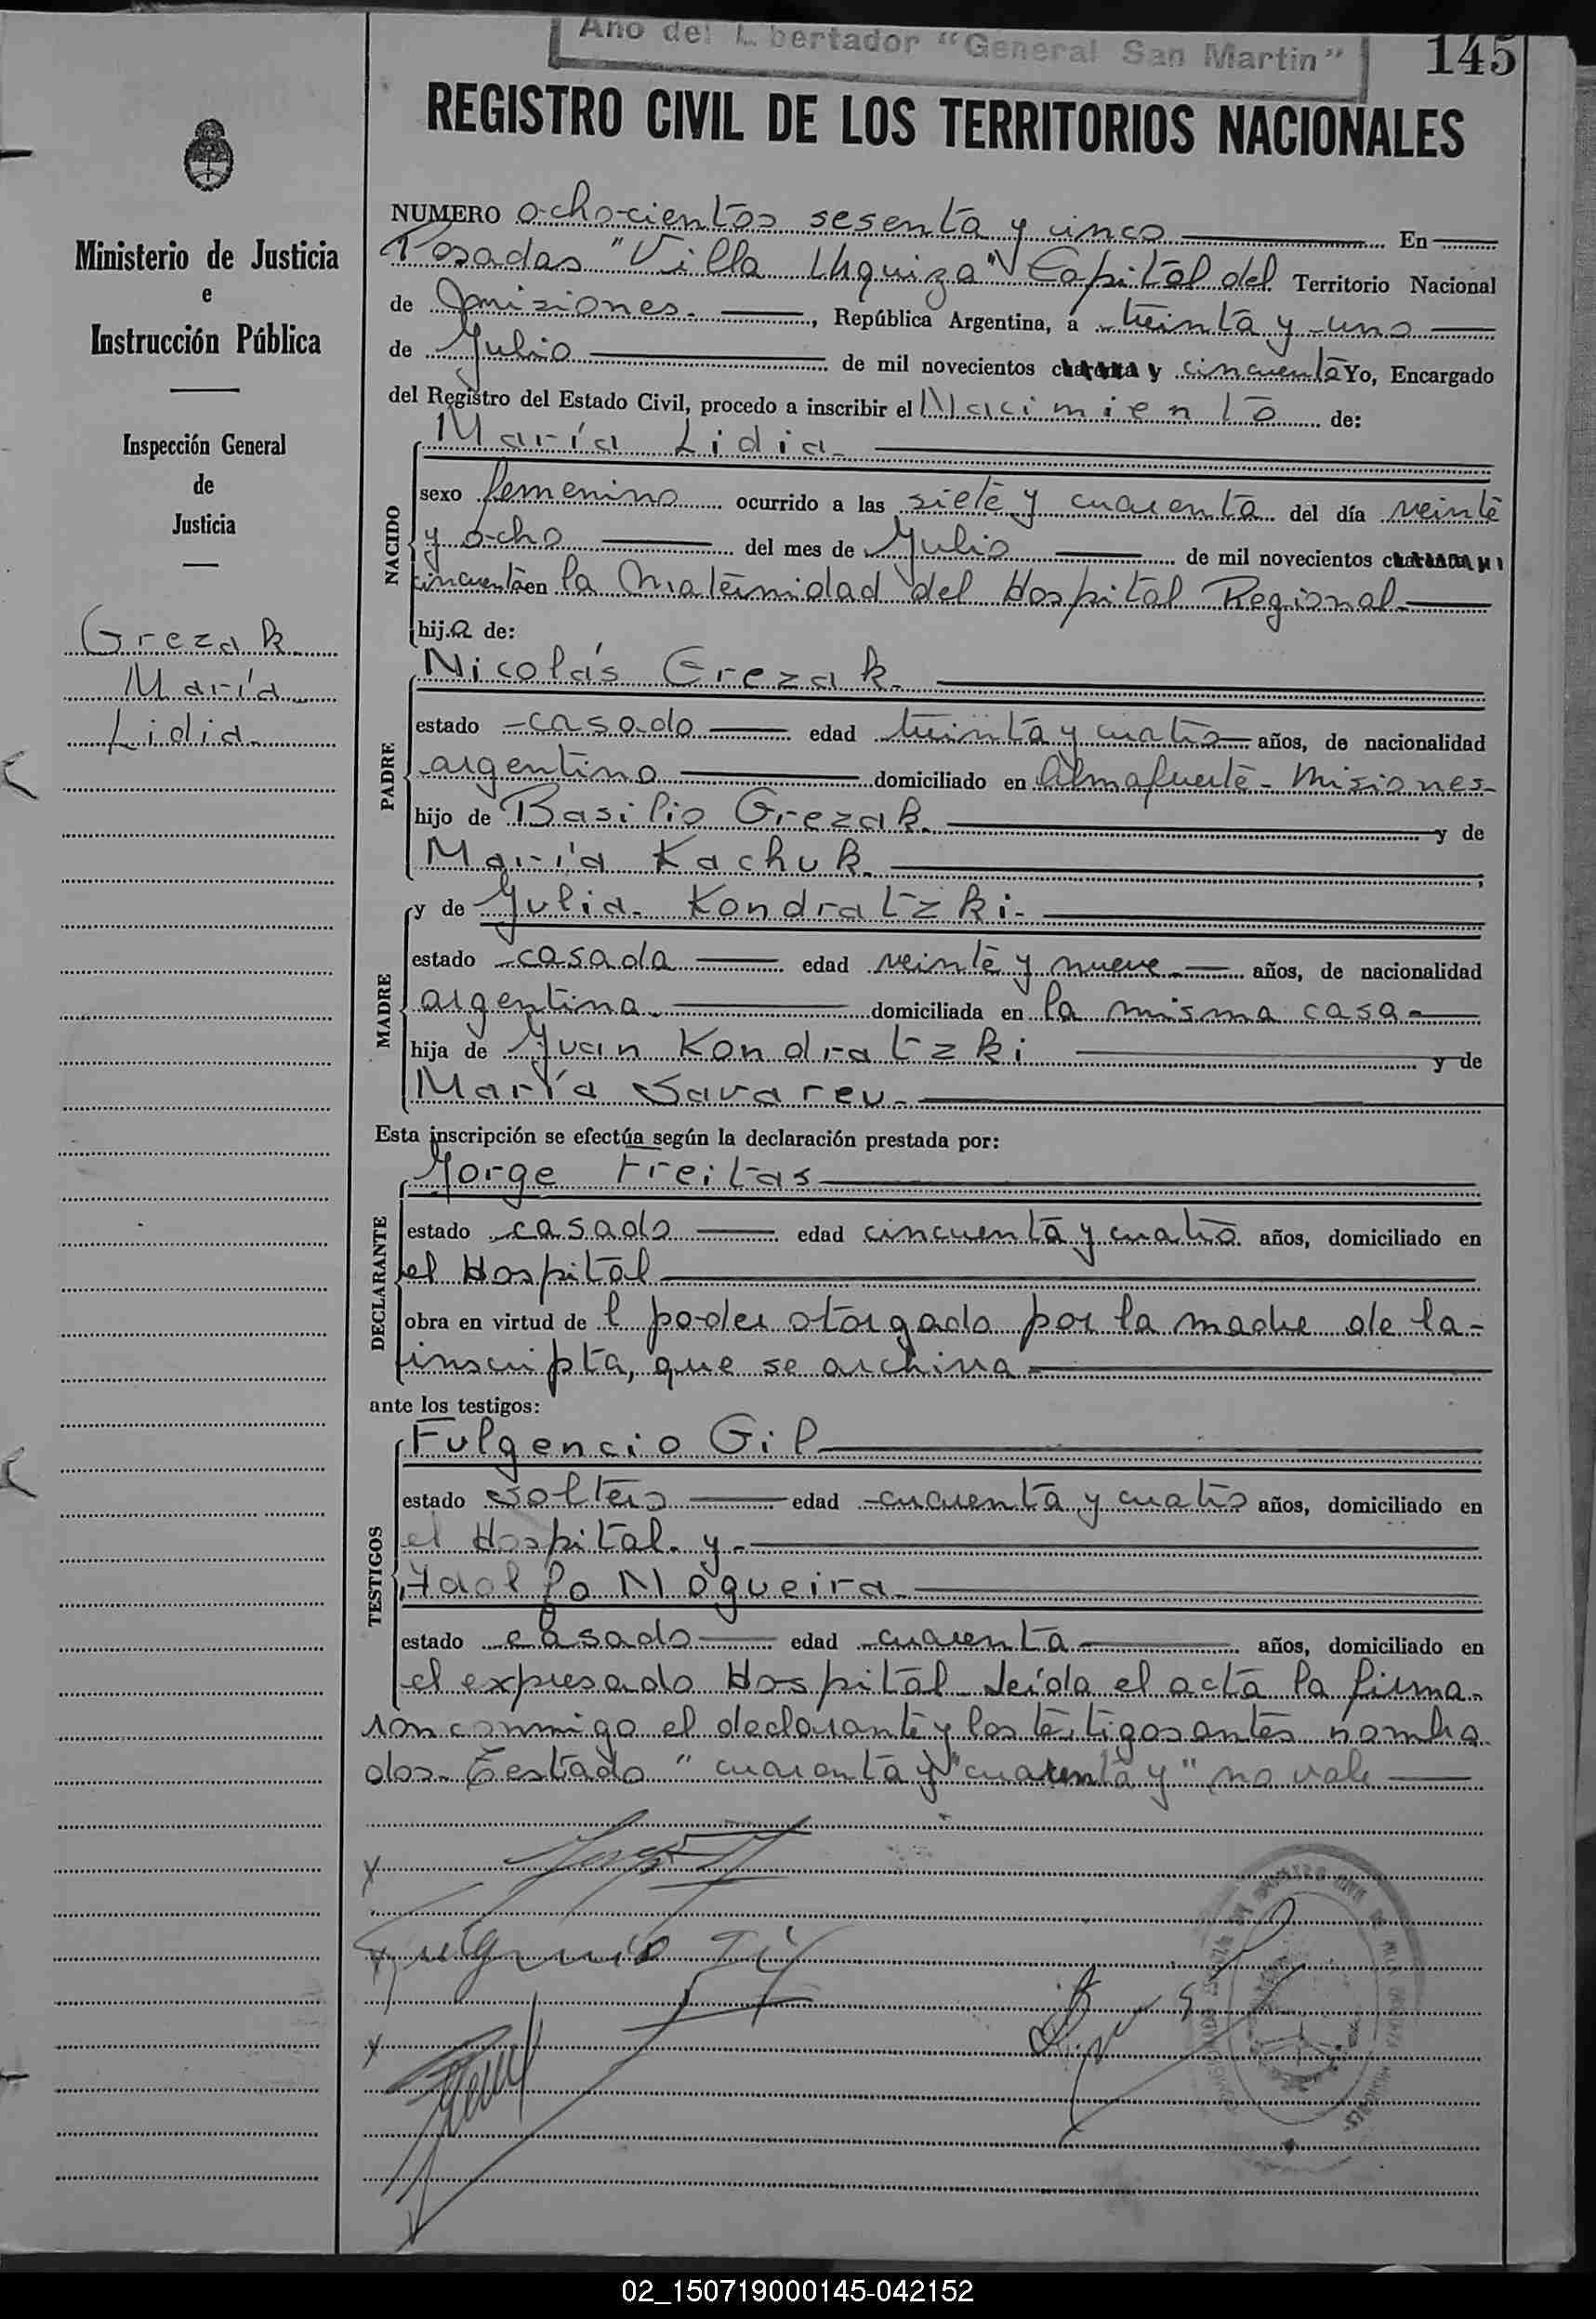 Año del Libertador "General San Martin"
145
REGISTRO CIVIL DE LOS TERRITORIOS NACIONALES
Ministerio de Justicia
e
Instrucción Pública
Inspección General
de
Justicia
Grezak
María
Lidia
NUMERO ochocientos sesenta y cinco En
Posadas "Villa Urquiza" Capital del Territorio Nacional
de Misiones. , República Argentina, a treinta y uno
de Julio de mil novecientos cuarenta y cincuenta Yo, Encargado
del Registro del Estado Civil, procedo a inscribir el Nacimiento de:
NACIDO
María Lidia
sexo femenino ocurrido a las siete y cuarenta del día veinte
y ocho del mes de Julio de mil novecientos cuarenta y
cincuenta en la Maternidad del Hospital Regional.
hij.a de:
PADRE
Nicolás Grezak.
estado casado edad treinta y cuatro años, de nacionalidad
argentino domiciliado en Almafuerte - Misiones-
hijo de Basilio Grezak. y de
María Kachuk. ;
MADRE
y de Julia Kondratzki.
estado casada edad veinte y nueve. años, de nacionalidad
argentina. domiciliada en la misma casa-
hija de Juan Kondratzki y de
María Savareu.
Esta inscripción se efectúa según la declaración prestada por:
DECLARANTE
Jorge Freitas
estado casado edad cincuenta y cuatro años, domiciliado en
el Hospital
obra en virtud de l poder otorgado por la madre de la-
inscripta, que se archiva
ante los testigos:
TESTIGOS
Fulgencio Gil
estado soltero edad cuarenta y cuatro años, domiciliado en
el Hospital. y.
Adolfo Nogueira.
estado casado edad cuarenta años, domiciliado en
el expresado Hospital. Leída el acta la firma-
ron conmigo el declarante y los testigos antes nombra
dos. Testado "cuarenta y" "cuarenta y" no vale
Fulgencio Gil
02_150719000145-042152